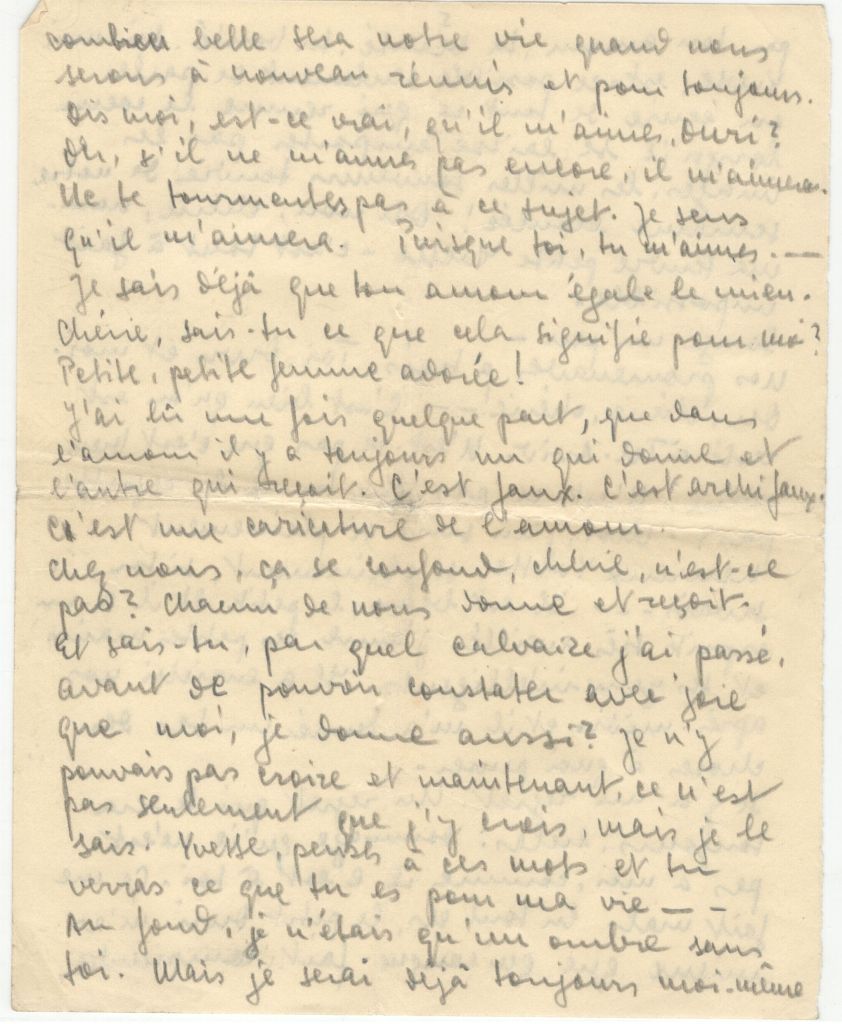 combien belle sera notre vie quand nous
serons à nouveau réunis et pour toujours.
Dis moi, est-ce vrai, qu'il m'aimes,
Oh, s'il ne m'aimes pas encore, il m'aimera.
Ne te tourmentes pas à ce sujet. Je sens
qu'il m'aimera. Puisque toi, tu m'aimes. —
Je sais déjà que ton amour égale le mien.
Chérie, sais-tu ce que cela signifie pour moi?
Petite, petite femme adorée!
J'ai lû une fois quelque part, que dans
l'amour il y a toujours un qui donne et
l'autre qui reçoit. C'est faux. C'est archifaux.
C'est une caricature de l'amour.
Chez nous, ça se confond, chérie, n'est-ce
pas? Chacun de nous donne et reçoit.
Et sais-tu, par quel calvaire j'ai passé,
avant de pouvoir constater avec joie
que moi, je donne aussi? Je n'y
pouvais pas croire et maintenant, ce n'est
pas seulement que j'y crois, mais je le
sais. Yvette, penses à ces mots et tu
verras ce que tu es pour ma vie — –
Au fond, je n'étais qu'un ombre sans
toi. Mais je serai déjà toujours moi-même